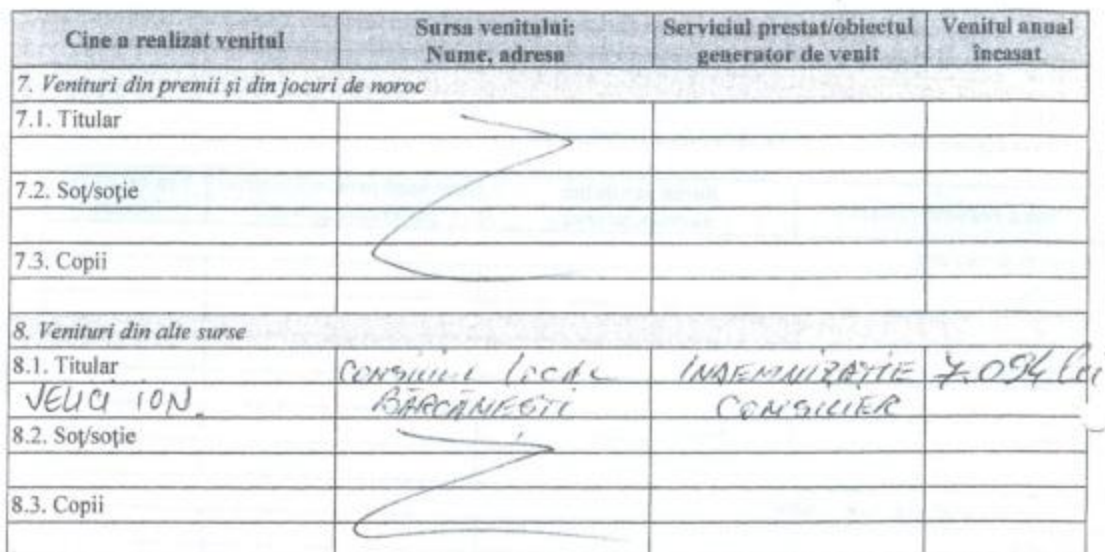 Cine a realizat venitul
Sursa venitului:
Nume, adresa
Serviciul prestat/obiectul
generator de venit
Venitul anual
încasat
7. Venituri din premii şi din jocuri de noroc
7.1. Titular
7.2. Soţ/soţie
7.3. Copii
8. Venituri din alte surse
8.1. Titular
CONSILIUL LOCAL
INDEMNIZAȚIE
7.094 lei
VELICI ION.
BĂRCĂNEȘTI
CONSILIER
8.2. Soţ/soţie
8.3. Copii